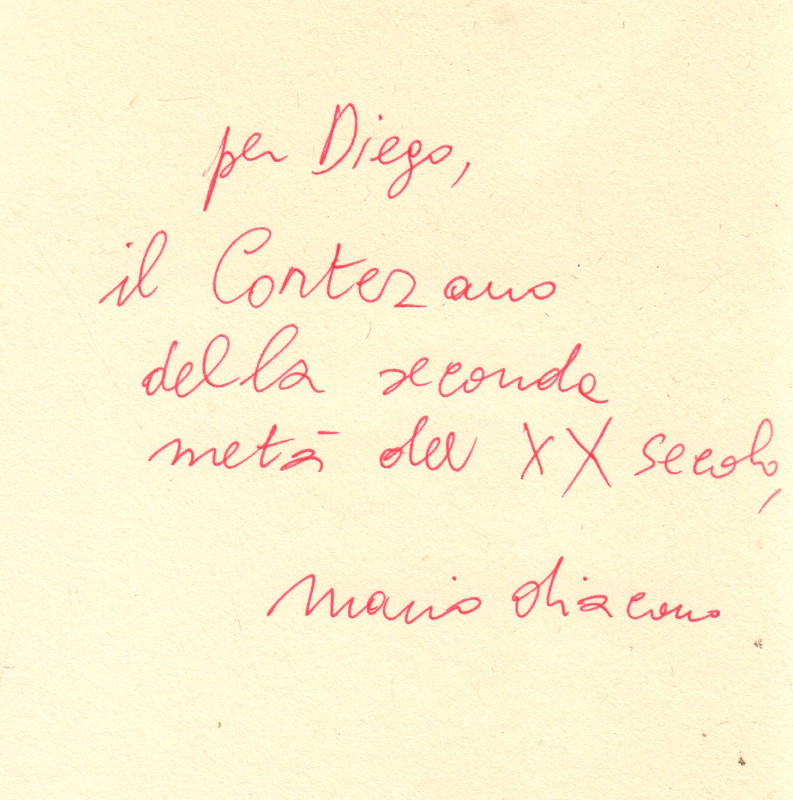 per Diego,
il Cortezano
della seconda
metà del XX secolo,
mario diacono